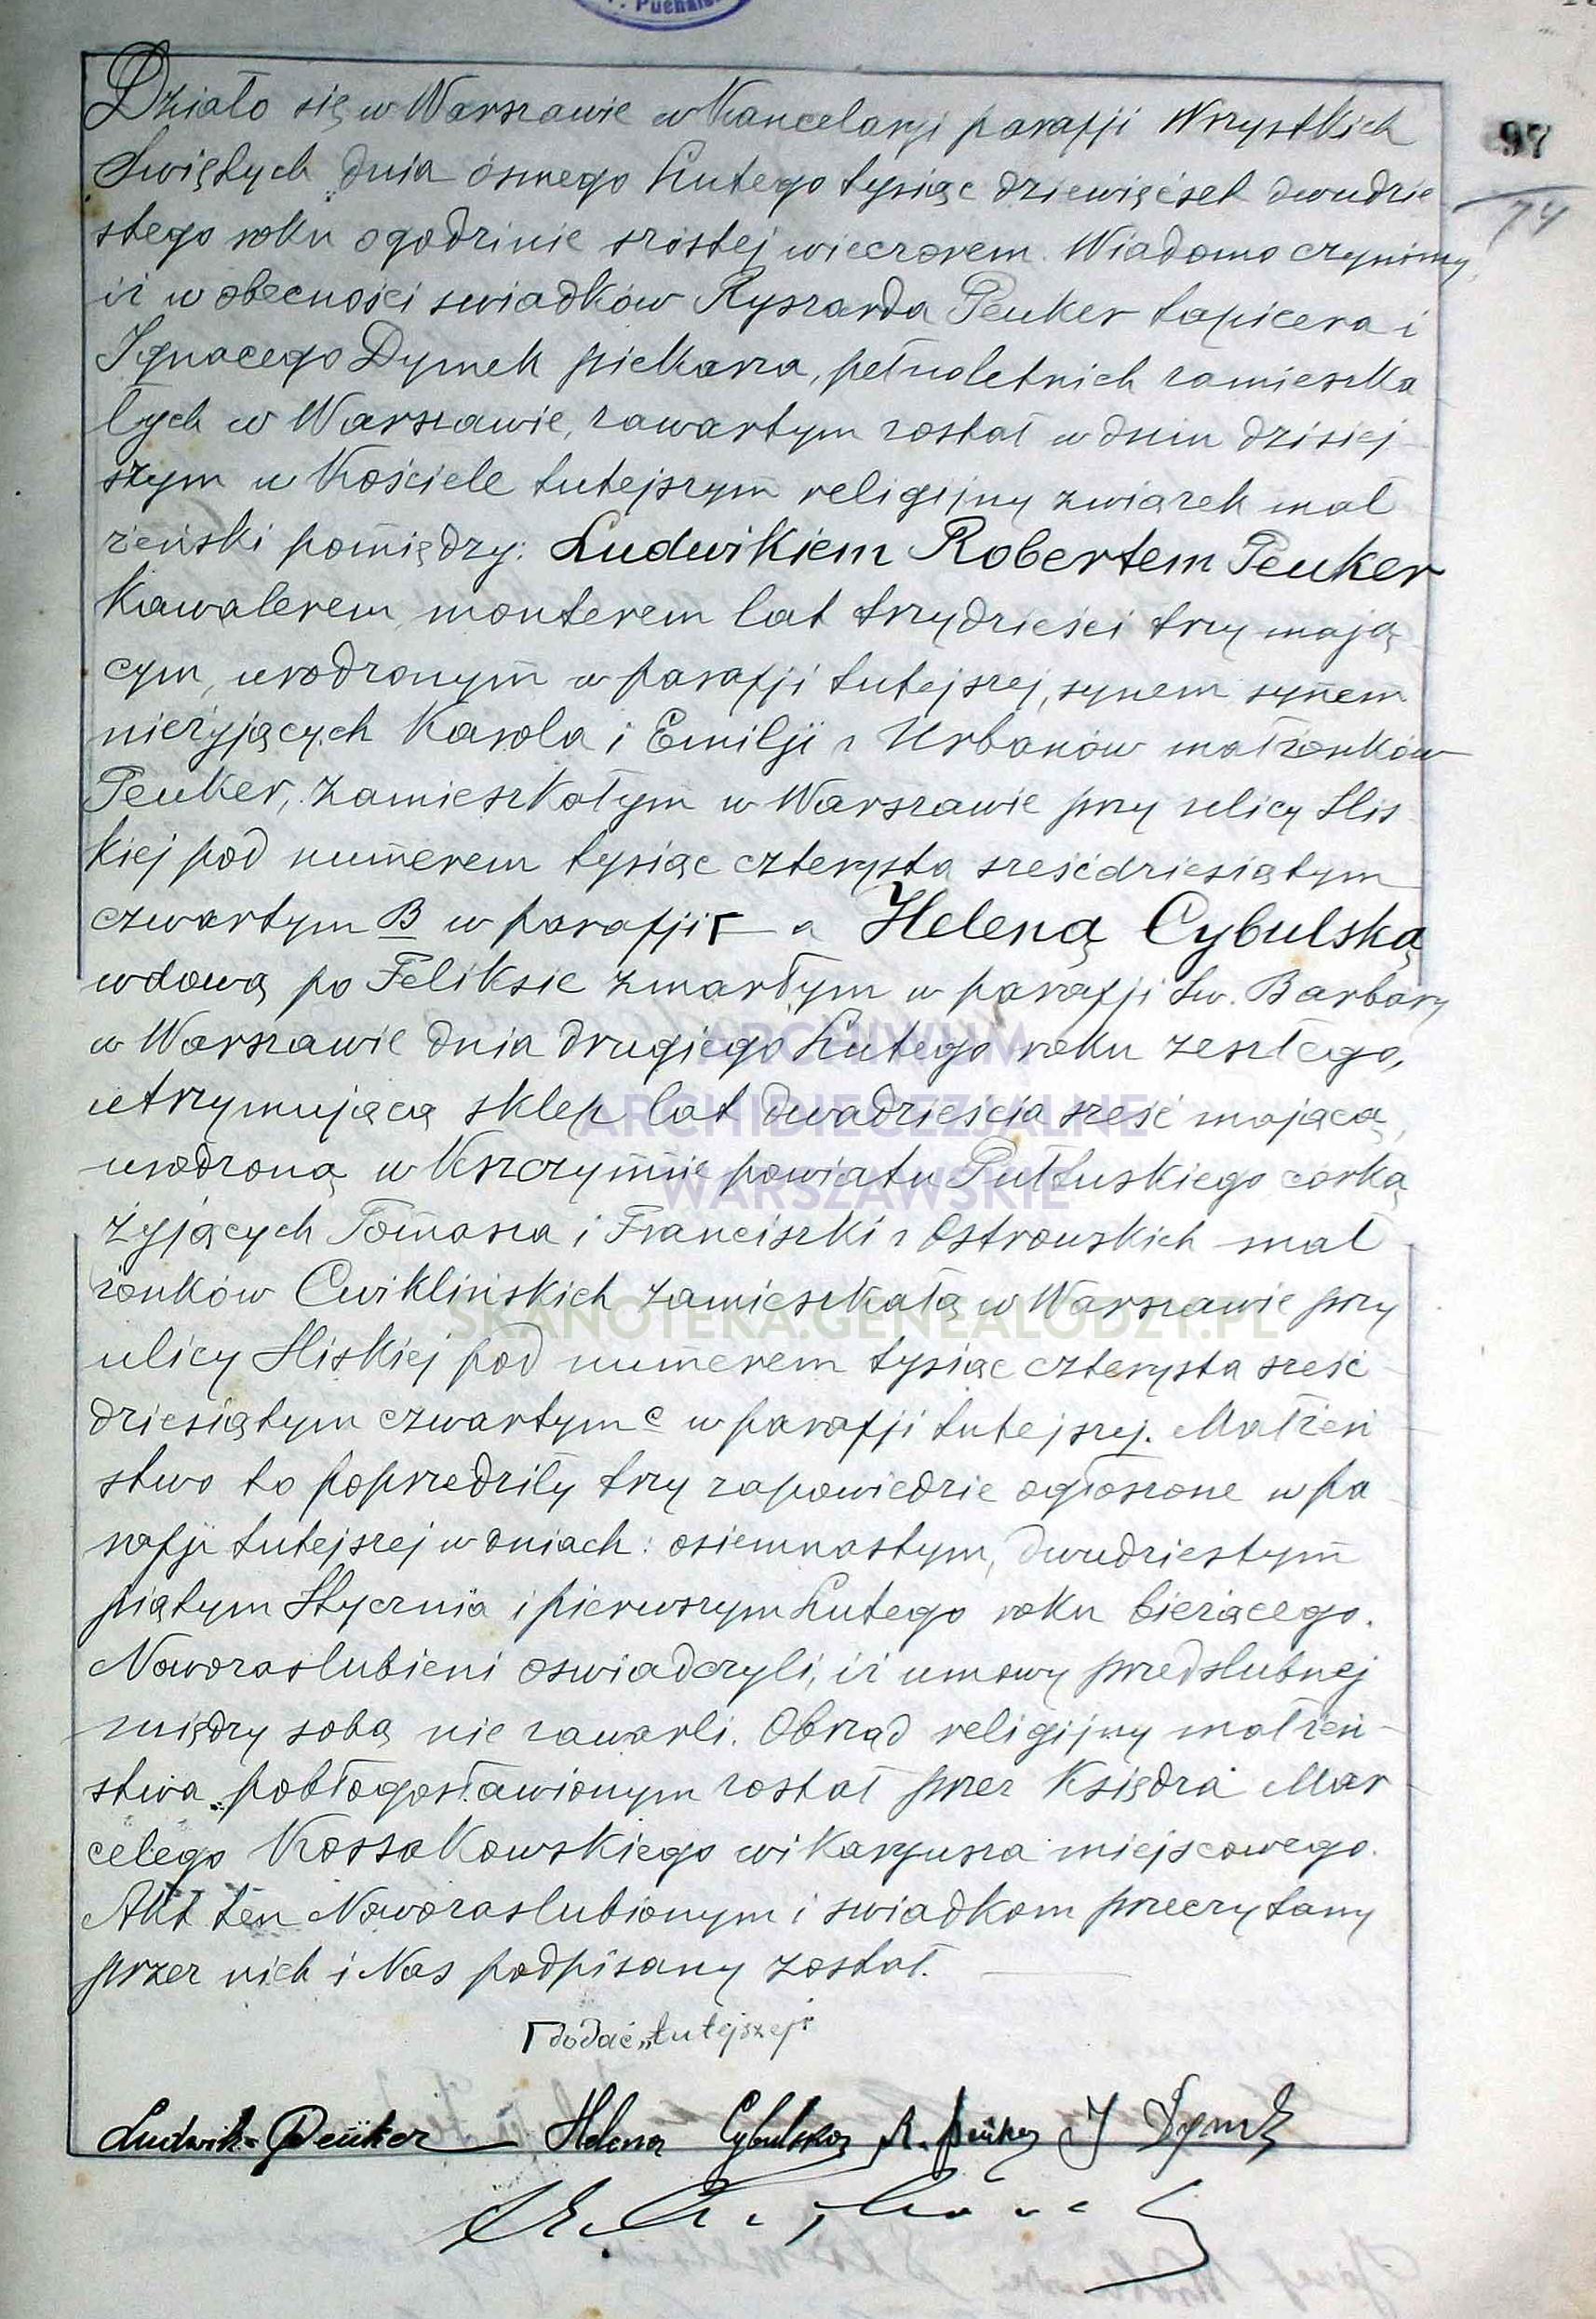 97
74
Działo się w Warszawie w Kancelaryi parafji Wszystkich
Świętych dnia ósmego Lutego tysiąc dziewięćset dwudzie
stego roku o godzinie szóstej wieczorem. Wiadomo czynimy,
iż w obecności swiadków Ryszarda Peuker tapicera i
Ignacego Dymek piekarza, pełnoletnich zamieszka
łych w Warszawie, zawartym został w dniu dzisiej
szym w Kościele tutejszym religijny związek mał
żeński pomiędzy: Ludwikiem Robertem Peuker
Kawalerem, monterem lat trzydzieści trzy mają
cym, urodzonym w parafji tutejszej, synem synem
nieżyjących Karola i Emilji z Urbanów małżonków
Peuker, zamieszkałym w Warszawie przy ulicy Slis
kiej pod numerem tysiąc czterysta sześćdziesiątym
czwartym B w parafji Γ— a Heleną Cybulską
wdową po Feliksie zmarłym w parafji Św. Barbary
w Warszawie dnia drugiego Lutego roku zeszłego,
utrzymującą sklep lat dwadzieścia sześć mającą,
urodzoną w Krzczynnie powiatu Pułtuskiego corką
żyjących Tomasza i Franciszki z Ostrowskich mał
żonków Cwiklińskich zamieszkałą w Warszawie przy
ulicy Sliskiej pod numerem tysiąc czterysta sześć
dziesiątym czwartym c w parafji tutejszej. Małżeń
stwo to poprzedziły trzy zapowiedzie ogłoszone w pa
rafji tutejszej w dniach: osiemnastym, dwudziestym
piątym Stycznia i pierwszym Lutego roku bieżącego.
Nowozaslubieni oswiadczyli, iż umowy przedslubnej
między sobą nie zawarli. Obrząd religijny małżeń-
stwa pobłogosławionym został przez Księdza Mar
celego Kossakowskiego wikaryusza miejscowego.
Akt ten Nowozaslubionym i swiadkom przeczytany
przez nich i Nas podpisany został. —
Γ dodać „tutejszej"
Ludwik Peuker Helena Cybulska R. Peuker I Dymek
ARCHIWUM
ARCHIDIECEZJALNE
WARSZAWSKIE
SKANOTEKA.GENEALODZY.PL